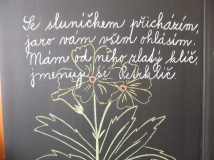 Se sluníčkem přicházím,
jaro vám všem ohlásím.
Mám od něho zlatý klíč,
jmenuji se Petrklíč.